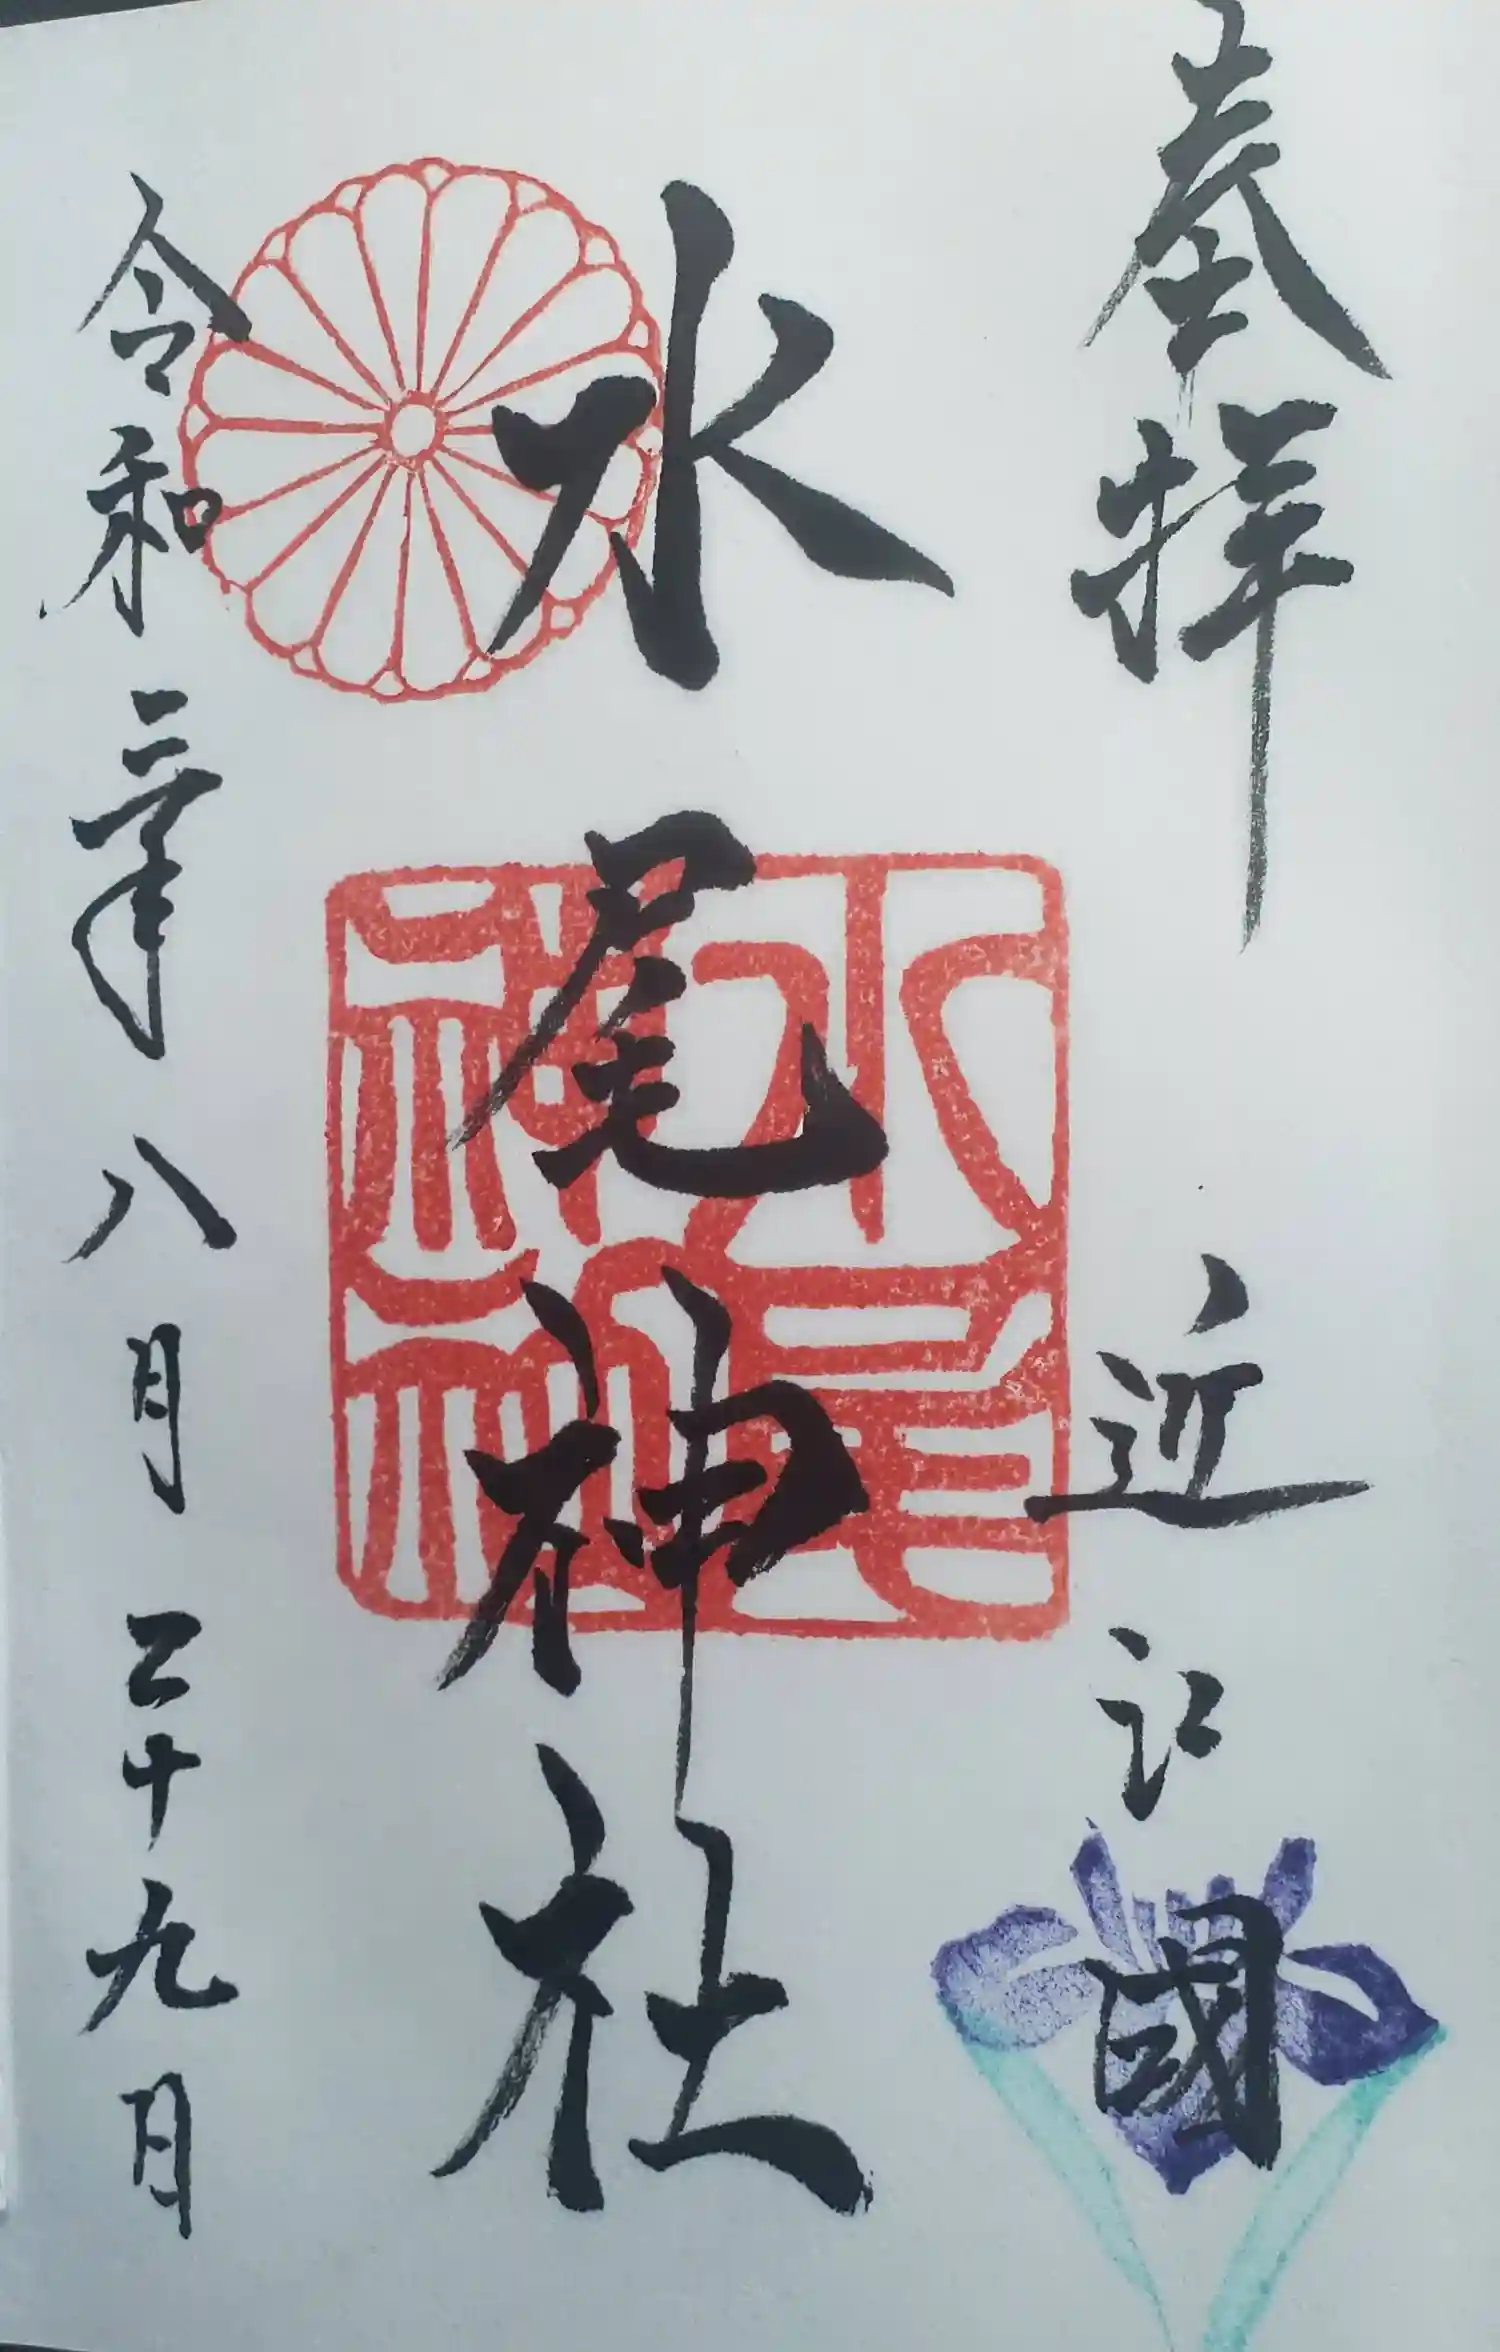 奉拝　近江國
水尾神社
水尾神社
令和三年八月二十九日